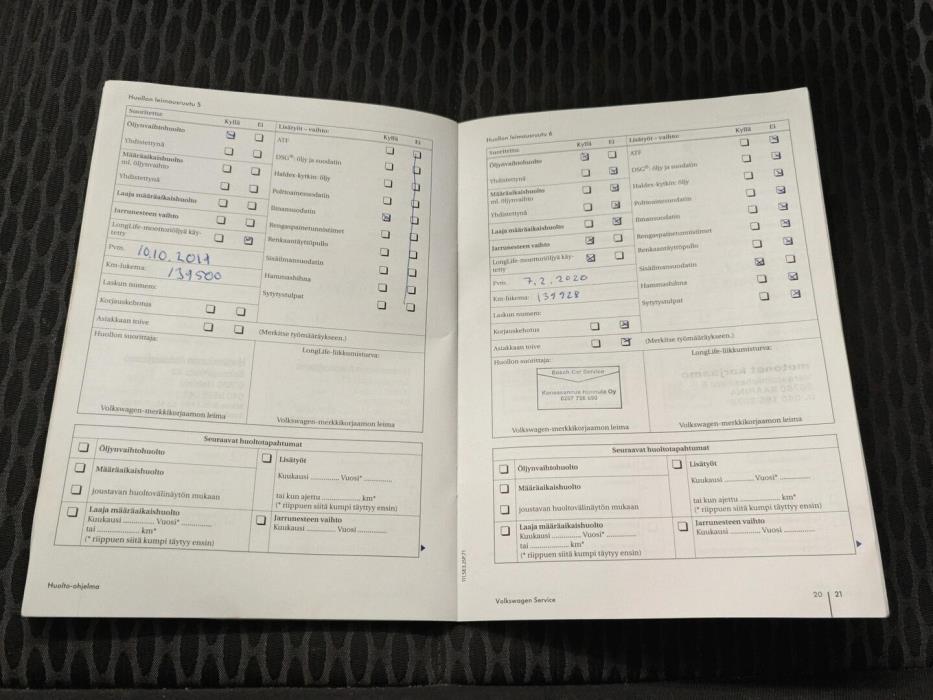 Huollon leimausruutu 5
Suoritettu: Kyllä Ei
Öljynvaihtohuolto
Yhdistettynä
Määräaikaishuolto
ml. öljynvaihto
Yhdistettynä
Laaja määräaikaishuolto
Jarrunesteen vaihto
LongLife-moottoriöljyä käy-
tetty
Pvm. 10.10.2019
Km-lukema: 139500
Laskun numero:
Korjauskehotus
Asiakkaan toive
(Merkitse työmääräykseen.)
Lisätyöt – vaihto: Kyllä Ei
ATF
DSG®: öljy ja suodatin
Haldex-kytkin: öljy
Polttoainesuodatin
Ilmansuodatin
Rengaspainetunnistimet
Renkaantäyttöpullo
Sisäilmansuodatin
Hammashihna
Sytytystulpat
Huollon suorittaja:
Volkswagen-merkkikorjaamon leima
LongLife-liikkumisturva:
Volkswagen-merkkikorjaamon leima
Seuraavat huoltotapahtumat
Öljynvaihtohuolto
Määräaikaishuolto
joustavan huoltovälinäytön mukaan
Laaja määräaikaishuolto
Kuukausi .............. Vuosi* ..............
tai .............................. km*
(* riippuen siitä kumpi täytyy ensin)
Lisätyöt
Kuukausi .............. Vuosi* ..............
tai kun ajettu .................... km*
(* riippuen siitä kumpi täytyy ensin)
Jarrunesteen vaihto
Kuukausi .............. Vuosi ..............
Huolto-ohjelma
Huollon leimausruutu 6
Suoritettu: Kyllä Ei
Öljynvaihtohuolto
Yhdistettynä
Määräaikaishuolto
ml. öljynvaihto
Yhdistettynä
Laaja määräaikaishuolto
Jarrunesteen vaihto
LongLife-moottoriöljyä käy-
tetty
Pvm. 7.2.2020
Km-lukema: 139928
Laskun numero:
Korjauskehotus
Asiakkaan toive
(Merkitse työmääräykseen.)
Lisätyöt – vaihto: Kyllä Ei
ATF
DSG®: öljy ja suodatin
Haldex-kytkin: öljy
Polttoainesuodatin
Ilmansuodatin
Rengaspainetunnistimet
Renkaantäyttöpullo
Sisäilmansuodatin
Hammashihna
Sytytystulpat
Huollon suorittaja:
Bosch Car Service
Oy
Volkswagen-merkkikorjaamon leima
LongLife-liikkumisturva:
Volkswagen-merkkikorjaamon leima
Seuraavat huoltotapahtumat
Öljynvaihtohuolto
Määräaikaishuolto
joustavan huoltovälinäytön mukaan
Laaja määräaikaishuolto
Kuukausi .............. Vuosi* ..............
tai .............................. km*
(* riippuen siitä kumpi täytyy ensin)
Lisätyöt
Kuukausi .............. Vuosi* ..............
tai kun ajettu .................... km*
(* riippuen siitä kumpi täytyy ensin)
Jarrunesteen vaihto
Kuukausi .............. Vuosi ..............
Volkswagen Service
20 21